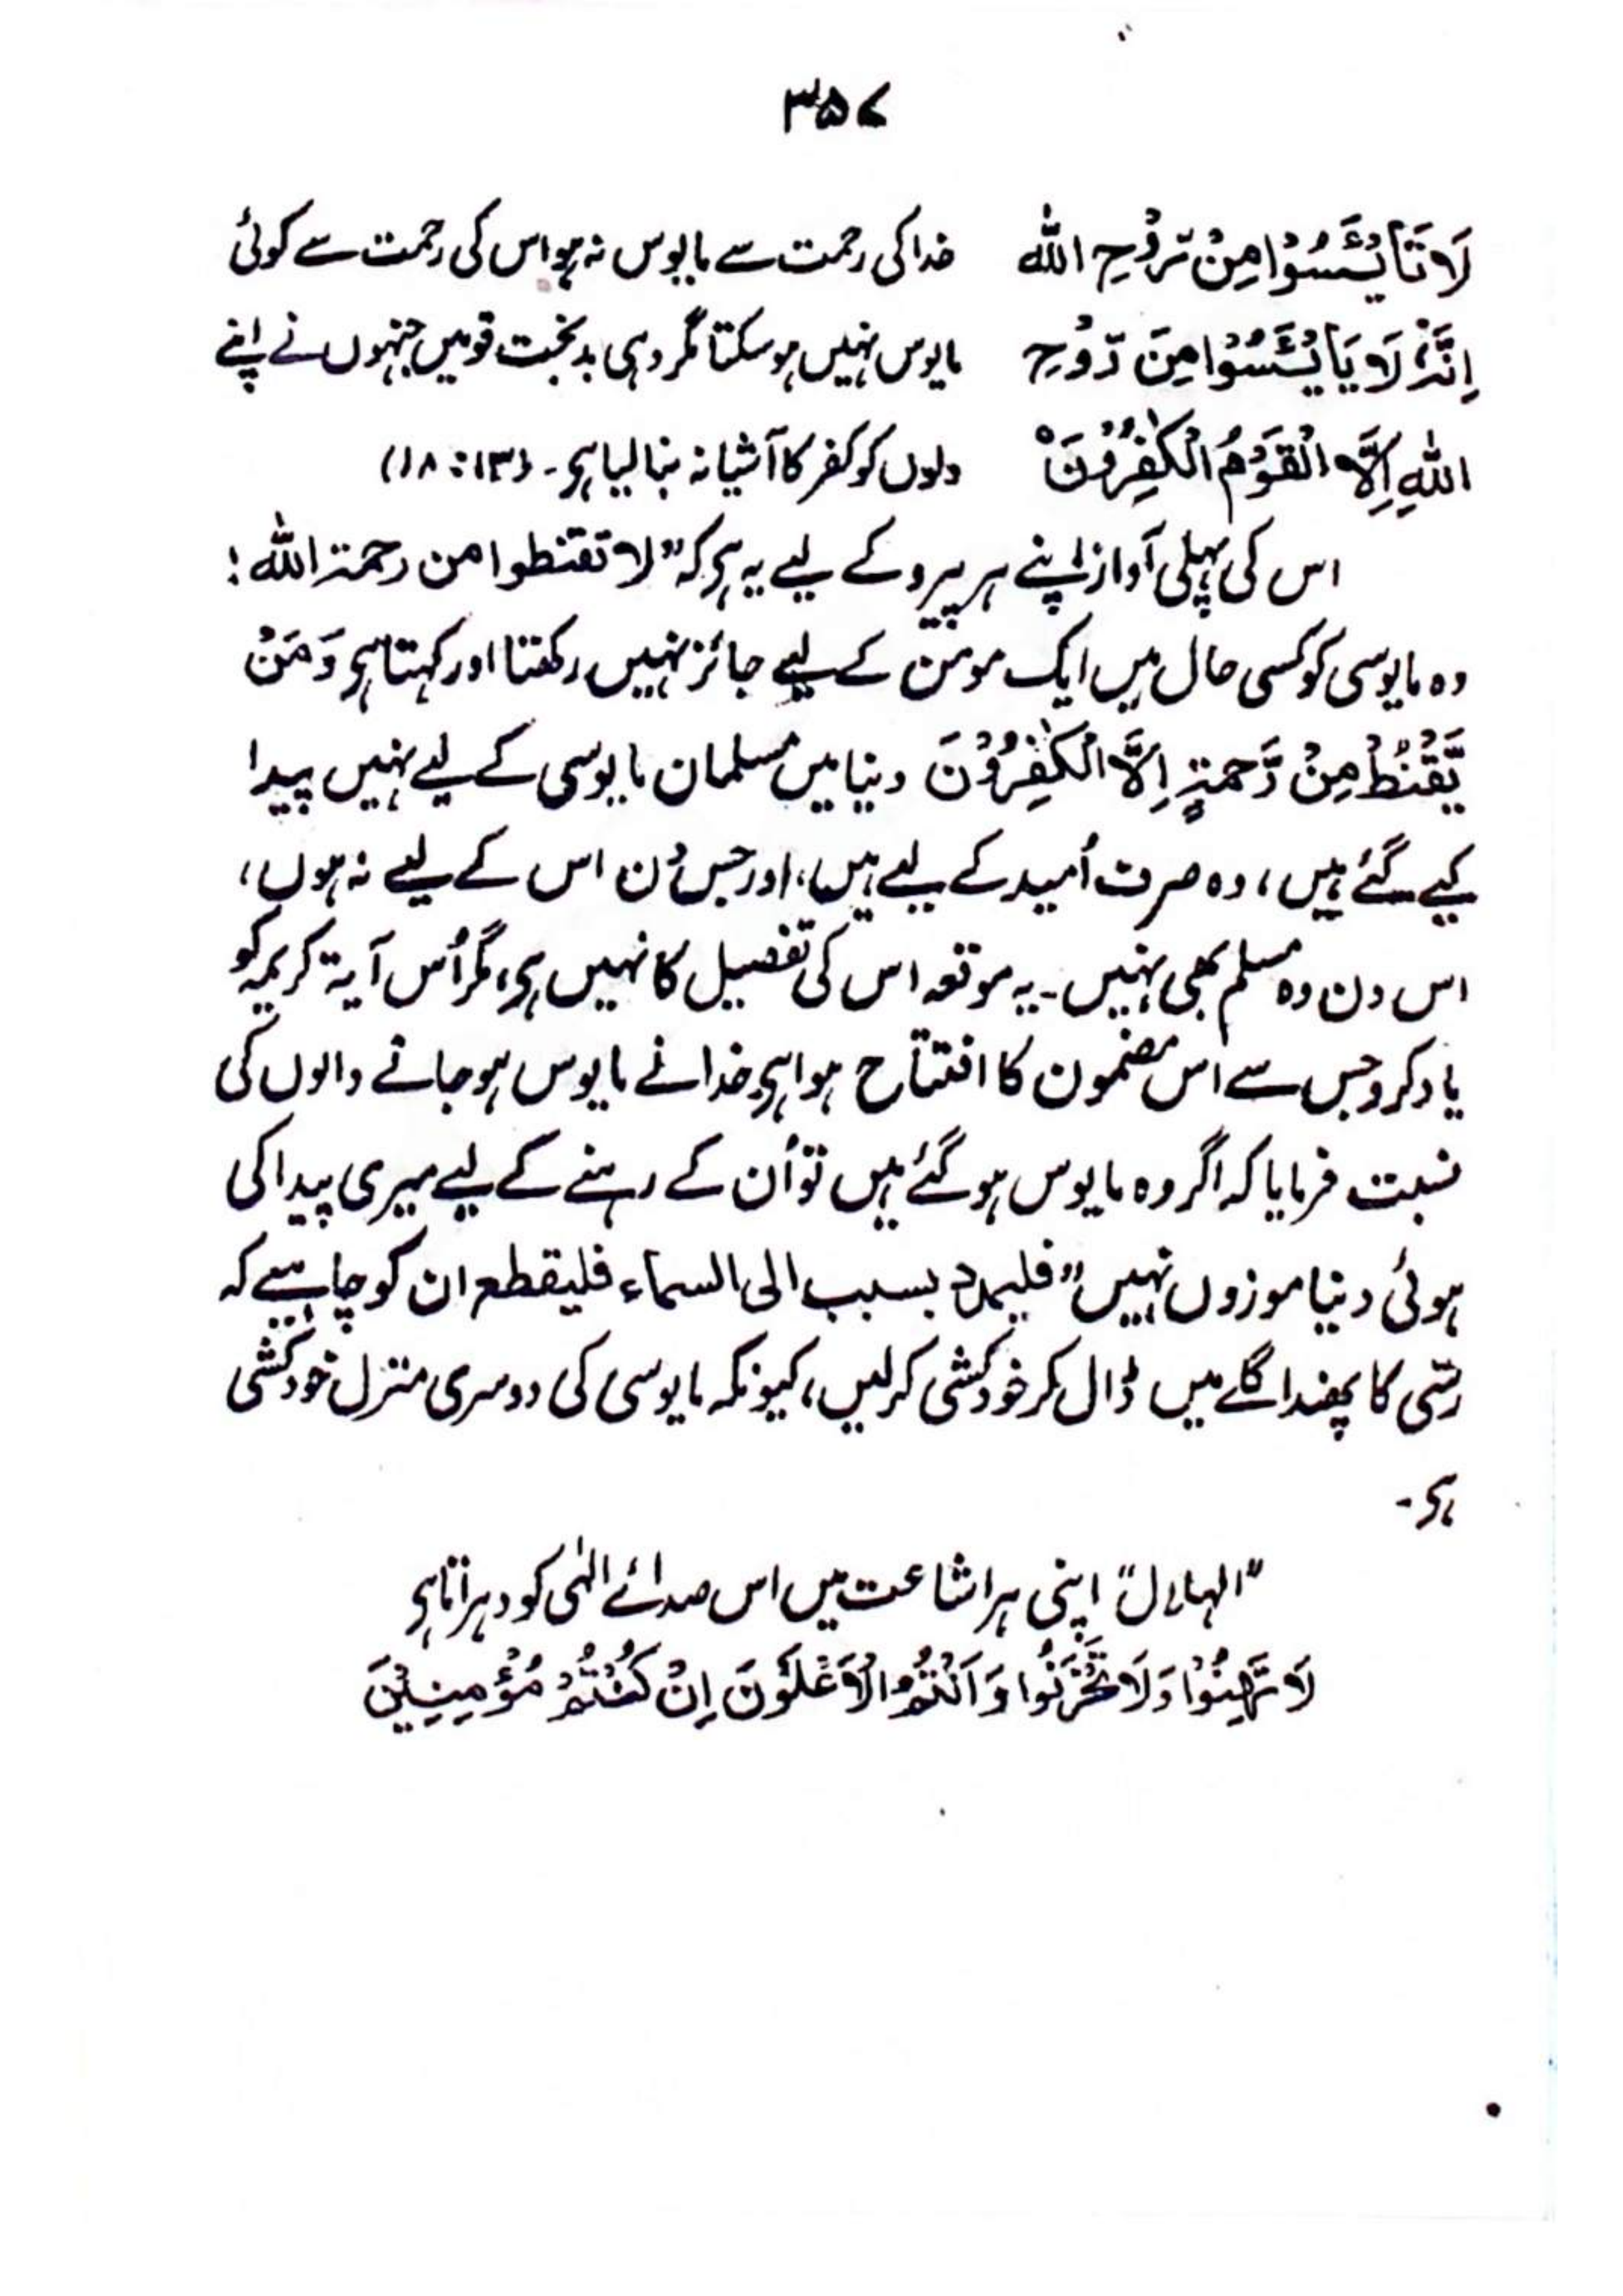 ۳۵۷
لَا تَأْيْئَسُوْا مِنْ رَّوْحِ اللّٰه خدا کی رحمت سے مایوس نہ ہو اس کی رحمت سے کوئی
اِنَّہٗ لَا يَأْيْئَسُوْا مِنَ رَّوْحِ مایوس نہیں ہو سکتا مگر وہی بدبخت قومیں جنہوں نے اپنے
اللّٰہِ اِلَّا الْقَوْمُ الْکٰفِرُوْنَ دلوں کو کفر کا آشیانہ بنا لیا ہی۔ (۱۳ : ۱۸)
اس کی پہلی آواز اپنے ہر پیرو کے لیے یہ ہی کہ ”لا تقنطوا من رحمۃ اللّٰہ !
وہ مایوسی کو کسی حال میں ایک مومن کے لیے جائز نہیں رکھتا اور کہتا ہی وَمَنْ
یَّقْنَطُ مِنْ رَّحمۃٍ اِلَّا الْکٰفِرُوْنَ دنیا میں مسلمان مایوسی کے لیے نہیں پیدا
کیے گئے ہیں، وہ صرف اُمید کے لیے ہیں، اور جس دن اس کے لیے نہ ہوں،
اس دن وہ مسلم بھی نہیں۔ یہ موقعہ اس کی تفصیل کا نہیں ہی، مگر اُس آیۃ کریمہ کو
یاد کرو جس سے اس مضمون کا افتتاح ہوا ہی خدا نے مایوس ہو جانے والوں کی
نسبت فرمایا کہ اگر وہ مایوس ہو گئے ہیں تو اُن کے رہنے کے لیے میری پیدا کی
ہوئی دنیا موزوں نہیں ”فلیمدد بسبب الی السماء فلیقطع ان کو چاہیے کہ
رسّی کا پھندا گلے میں ڈال کر خودکشی کرلیں، کیونکہ مایوسی کی دوسری منزل خودکشی
ہی۔
”الہلال“ اپنی ہر اشاعت میں اس صدائے الٰہی کو دہراتا ہی
لَا تَهِنُوْا وَلَا تَحْزَنُوا وَاَنْتُمُ الْاَعْلَوْنَ اِنْ کُنْتُمْ مُؤْمِنِیْنَ